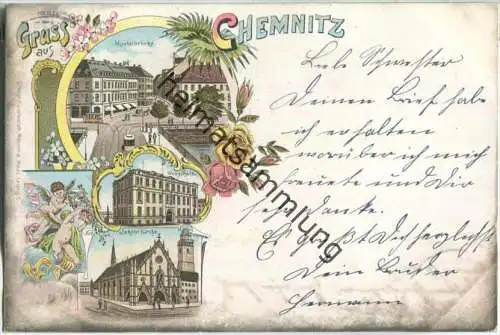 Gruss
aus
CHEMNITZ
Nicolaibrücke
Jakobi Kirche
heimatsammlung.de
Liebe Schwester
Deinen Brief habe
ich erhalten
worüber ich mich
freuete und Dir
sehr danke.
Es grüßt Dich herzlichst
Dein Bruder
Hermann